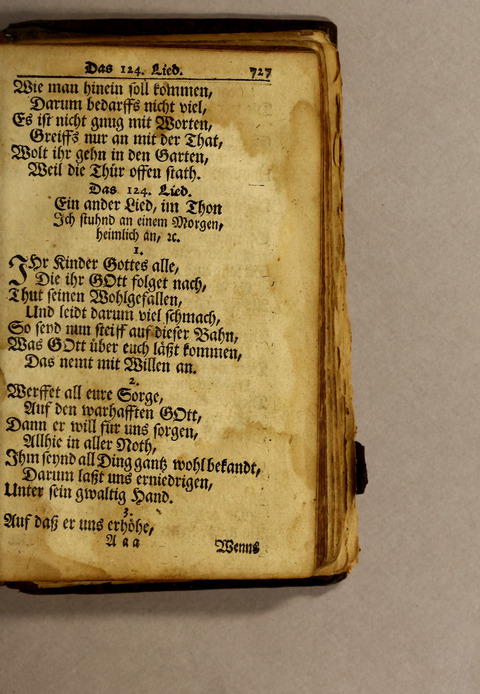 Das 124. Lied. 727
Wie man hinein soll kommen,
Darum bedarffs nicht viel,
Es ist nicht gnug mit Worten,
Greiffs nur an mit der That,
Wolt ihr gehn in den Garten,
Weil die Thür offen stath.
Das 124. Lied.
Ein ander Lied, im Thon
Ich stuhnd an einem Morgen,
heimlich an, ꝛc.
1.
IHr Kinder Gottes alle,
Die ihr GOtt folget nach,
Thut seinen Wohlgefallen,
Und leidt darum viel schmach,
So seyd nun steiff auf dieser Bahn,
Was GOtt über euch läßt kommen,
Das nemt mit Willen an.
2.
Werffet all eure Sorge,
Auf den warhafften GOtt,
Dann er will für uns sorgen,
Allhie in aller Noth,
Ihm seynd all Ding gantz wohl bekandt,
Darum laßt uns erniedrigen,
Unter sein gwaltig Hand.
3.
Auf daß er uns erhöhe,
A a a Wenns